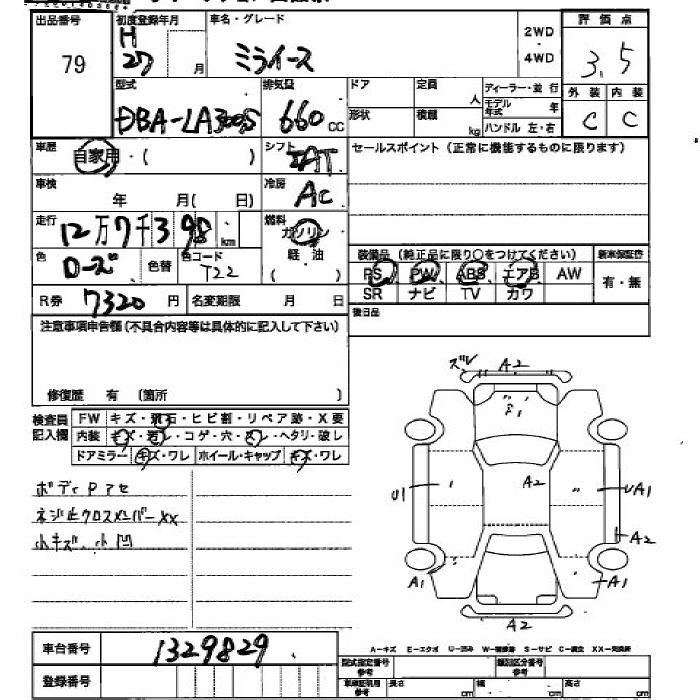 出品番号 初度登録年月 車名・グレード 2WD ・ 4WD 評価点
79 H 27 月 ミライース 3.5
型式 排気量 ドア 定員 人 ディーラー・並 行 外装 内装
DBA-LA300S 660 cc 形状 積載 kg モデル年式 年 ハンドル 左・右 C C
車歴 自家用・( ) シフト IAT セールスポイント(正常に機能するものに限ります)
車検 年 月(日) 冷房 AC
走行 12万7千398 km 燃料 ガソリン 軽・油
色 ローズ 色替 色コード T22 装備品(純正品に限り○をつけてください) 新車保証書
PS PW ABS エアB AW 有・無
SR ナビ TV カワ
R券 7320 円 名変期限 月 日 後日品
注意事項申告欄(不具合内容等は具体的に記入して下さい)
修復歴 有 〔箇所 〕
検査員記入欄 FW キズ・飛石・ヒビ割・リペア跡・X要
内装 キズ・汚レ・コゲ・穴・スレ・ヘタリ・破レ
ドアミラー キズ・ワレ ホイール・キャップ キズ・ワレ
ボディPアセ
ネジ止クロスメンバーXX
小キズ、小凹
ズレ A2
F1
U1 A2 UA1
A2
A1 A1
A2
車台番号 1329829
A-キズ E-エクボ U-凹み W-補修跡 S-サビ C-腐食 XX-交換済
登録番号 型式指定番号 参考 類別区分番号 参考
車庫証明用 参考 長さ cm 幅 cm 高さ cm